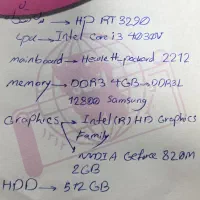 → HP RT 3290
cpu → Intel core i3 4030U
mainboard → Hewlett-packard 2212
memory → DDR3 4GB → DDR3L
12800 Samsung
Graphics → Intel(R) HD Graphics
Family
NVIDIA Geforce 820M
2GB
HDD → 512 GB